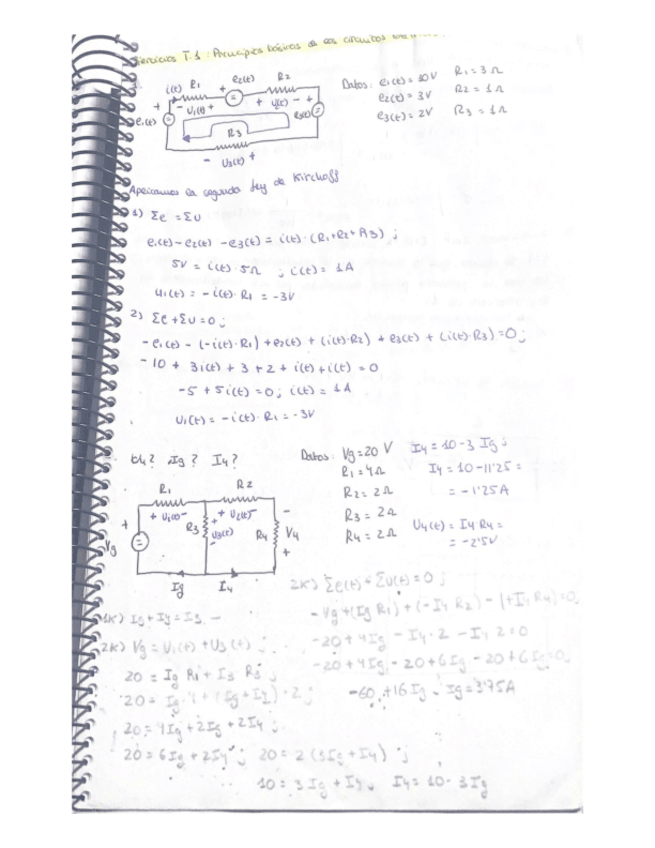 Ejercicios T-1: Principios básicos de los circuitos
i(t) R1 e2(t) R2
+ - U1(t) + + - + - +
e1(t) e3(t)
R3
- U3(t) +
Datos: e1(t) = 10V R1 = 3Ω
e2(t) = 3V R2 = 1Ω
e3(t) = 2V R3 = 1Ω
Aplicamos la segunda ley de Kirchoff
1) Σe = ΣU
e1(t) - e2(t) - e3(t) = i(t) · (R1+R2+R3) ;
5V = i(t) · 5Ω ; i(t) = 1A
U1(t) = - i(t) · R1 = -3V
2) Σe + ΣU = 0 ;
- e1(t) - (-i(t) · R1) + e2(t) + (i(t) · R2) + e3(t) + (i(t) · R3) = 0 ;
- 10 + 3i(t) + 3 + 2 + i(t) + i(t) = 0
-5 + 5i(t) = 0 ; i(t) = 1A
U1(t) = - i(t) · R1 = -3V
U4? Ig? I4?
R1 R2
+ U1(t) - + U2(t) -
+ Vg R3 + U3(t) - R4 - V4 +
Ig I4
Datos: Vg = 20 V
R1 = 4Ω
R2 = 2Ω
R3 = 2Ω
R4 = 2Ω
I4 = 10 - 3 Ig ;
I4 = 10 - 11'25 =
= -1'25A
U4(t) = I4 R4 =
= -2'5V
1K) Ig + I4 = I3
2K) Vg = U1(t) + U3(t) ;
20 = Ig R1 + I3 R3 ;
20 = Ig · 4 + (Ig + I4) · 2 ;
20 = 4Ig + 2Ig + 2I4 ;
20 = 6Ig + 2I4 ; 20 = 2 (3Ig + I4) ;
10 = 3Ig + I4 ; I4 = 10 - 3Ig
2K) Σe(t) + ΣU(t) = 0 ;
- Vg + (Ig R1) + (-I4 R2) - (+I4 R4) = 0
-20 + 4Ig - I4 · 2 - I4 2 = 0
-20 + 4Ig - 20 + 6Ig - 20 + 6Ig = 0
-60 + 16Ig Ig = 3'75A